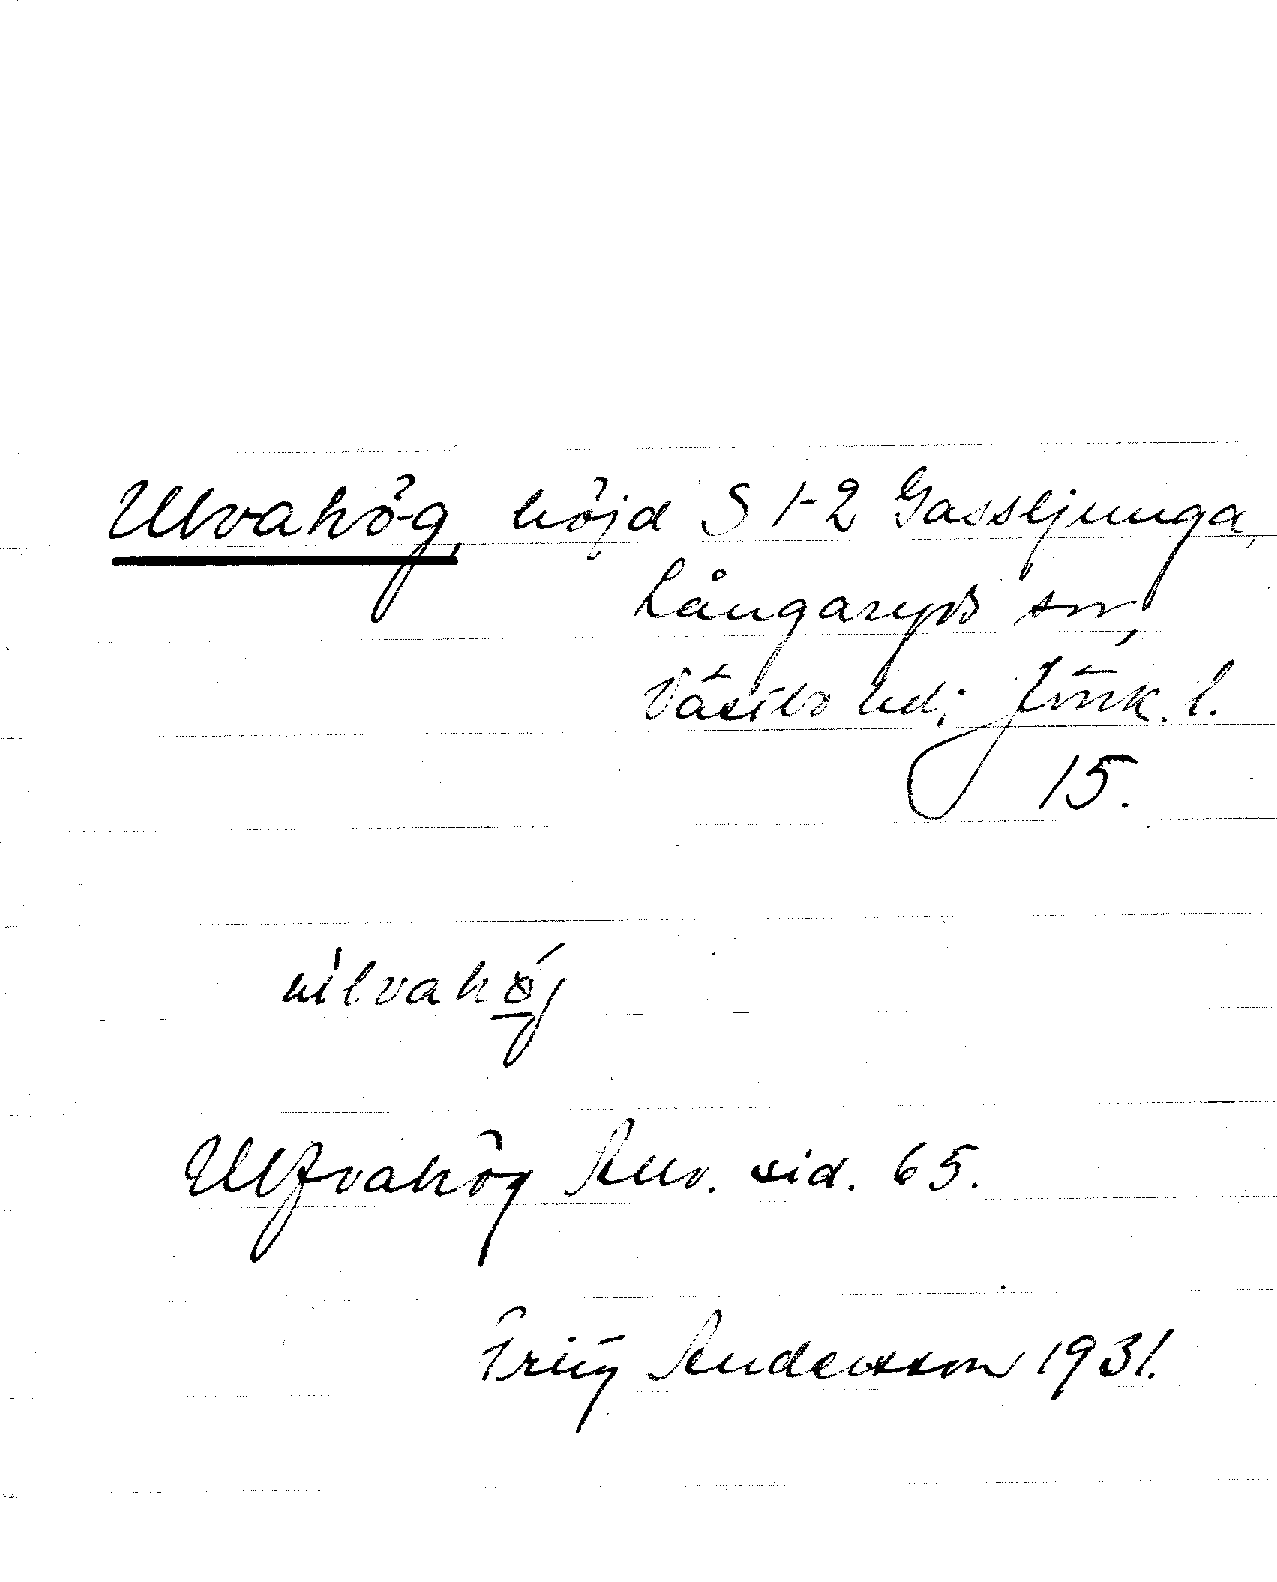 Ulvahög, höjd S 1-2 Gassljunga,
Långaryds sn,
Västbo hd; Jönk. l.
15.
Ulfvahög Anv. sid. 65.
Andersson 1931.